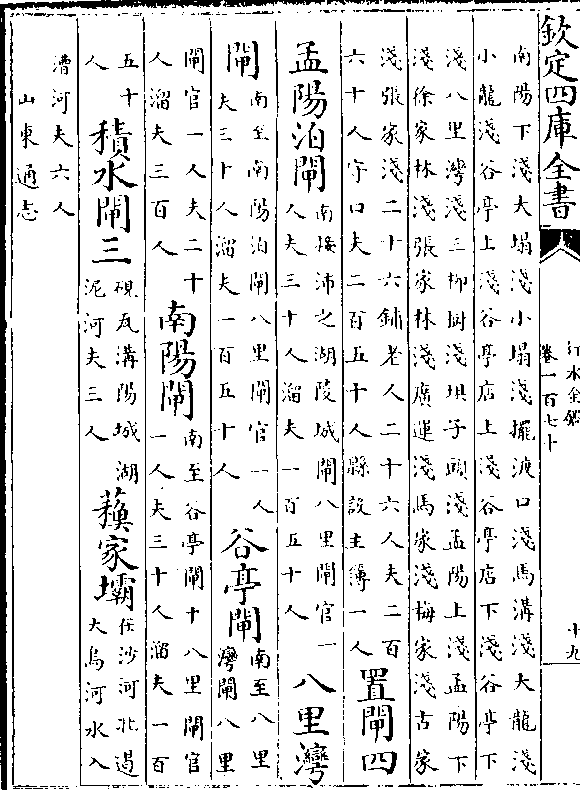 欽定四庫全書
行水金鑑
卷一百七十
十九
南陽下淺大塌淺小塌淺擺渡口淺馬溝淺大龍淺
小龍淺谷亭上淺谷亭店上淺谷亭店下淺谷亭下
淺八里灣淺三柳樹淺垻子頭淺孟陽上淺孟陽下
淺徐家林淺張家林淺廣運淺馬家淺梅家淺古家
淺張家淺二十六鋪老人二十六人夫二百
六十人守口夫二百五十人縣設主簿一人
置閘四
孟陽泊閘
南接沛之湖陵城閘八里閘官一
人夫三十人溜夫一百五十人
八里灣
閘
南至南陽泊閘八里閘官一人
夫三十人溜夫一百五十人
谷亭閘
南至八里
灣閘八里
閘官一人夫二十
人溜夫三百人
南陽閘
南至谷亭閘十八里閘官
一人夫三十人溜夫一百
五十
人
積水閘三
硯瓦溝陽城湖
泥河夫三人
蘓家壩
在沙河北過
大烏河水入
漕河夫六人
山東通志